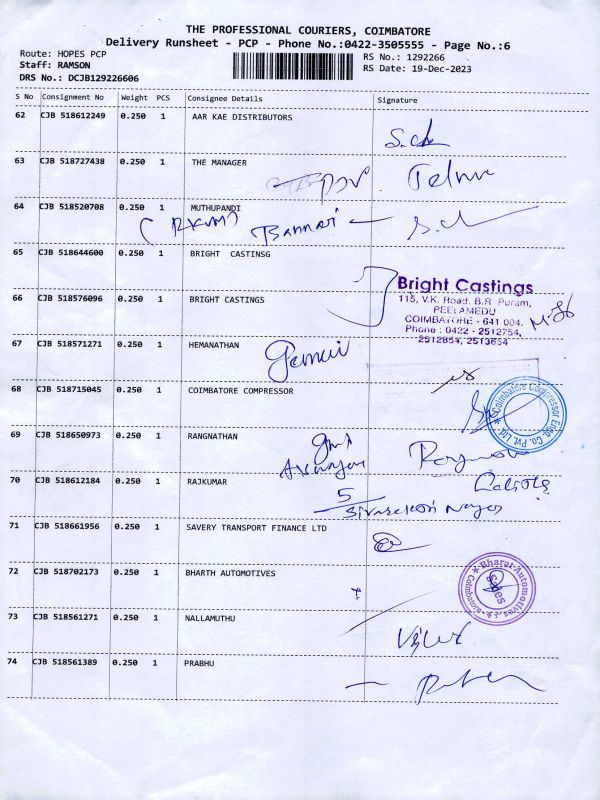 THE PROFESSIONAL COURIERS, COIMBATORE
Delivery Runsheet - PCP - Phone No.:0422-3505555 - Page No.:6
Route: HOPES PCP
Staff: RAMSON
DRS No.: DCJB129226606
RS No.: 1292266
RS Date: 19-Dec-2023
S No Consignment No Weight PCS Consignee Details Signature
62 CJB 518612249 0.250 1 AAR KAE DISTRIBUTORS
63 CJB 518727438 0.250 1 THE MANAGER
64 CJB 518520708 0.250 1 MUTHUPANDI
Bannari
65 CJB 518644600 0.250 1 BRIGHT CASTINSG
66 CJB 518576096 0.250 1 BRIGHT CASTINGS
Bright Castings
115, V.K. Road, B.R. Puram,
PEELAMEDU
COIMBATORE - 641 004.
Phone : 0422 - 2512754,
2512854, 2513654
67 CJB 518571271 0.250 1 HEMANATHAN
68 CJB 518715045 0.250 1 COIMBATORE COMPRESSOR
Coimbatore Compressor Engg. Co. Pvt. Ltd.
69 CJB 518650973 0.250 1 RANGNATHAN
70 CJB 518612184 0.250 1 RAJKUMAR
5
71 CJB 518661956 0.250 1 SAVERY TRANSPORT FINANCE LTD
72 CJB 518702173 0.250 1 BHARTH AUTOMOTIVES
Bharat Automotives
Sales
Coimbatore
73 CJB 518561271 0.250 1 NALLAMUTHU
74 CJB 518561389 0.250 1 PRABHU